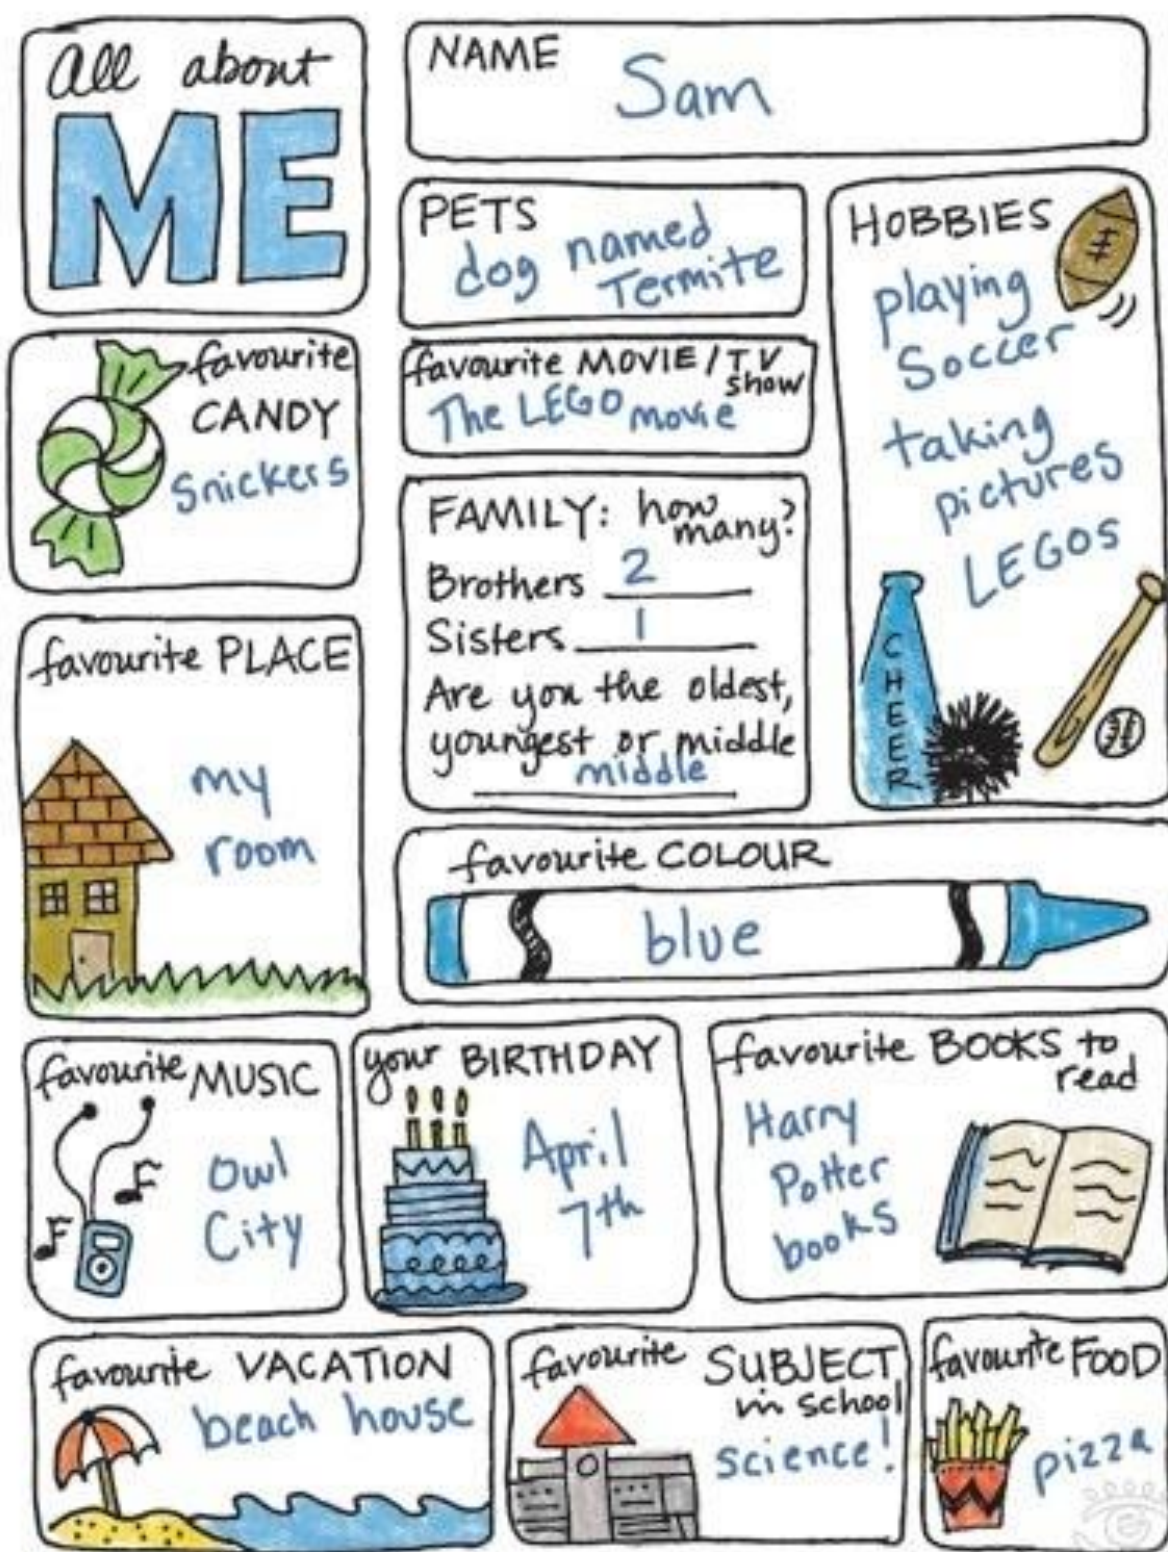 All about
ME
NAME
Sam
PETS
dog named
Termite
HOBBIES
playing
Soccer
taking
pictures
LEGOs
favourite
CANDY
Snickers
favourite MOVIE / TV
show
The LEGO movie
FAMILY: how
many?
Brothers 2
Sisters 1
Are you the oldest,
youngest or middle
middle
CHEER
favourite PLACE
my
room
favourite COLOUR
blue
favourite MUSIC
Owl
City
your BIRTHDAY
April
7th
favourite BOOKS to
read
Harry
Potter
books
favourite VACATION
beach house
favourite SUBJECT
in school
science!
favourite FOOD
pizza